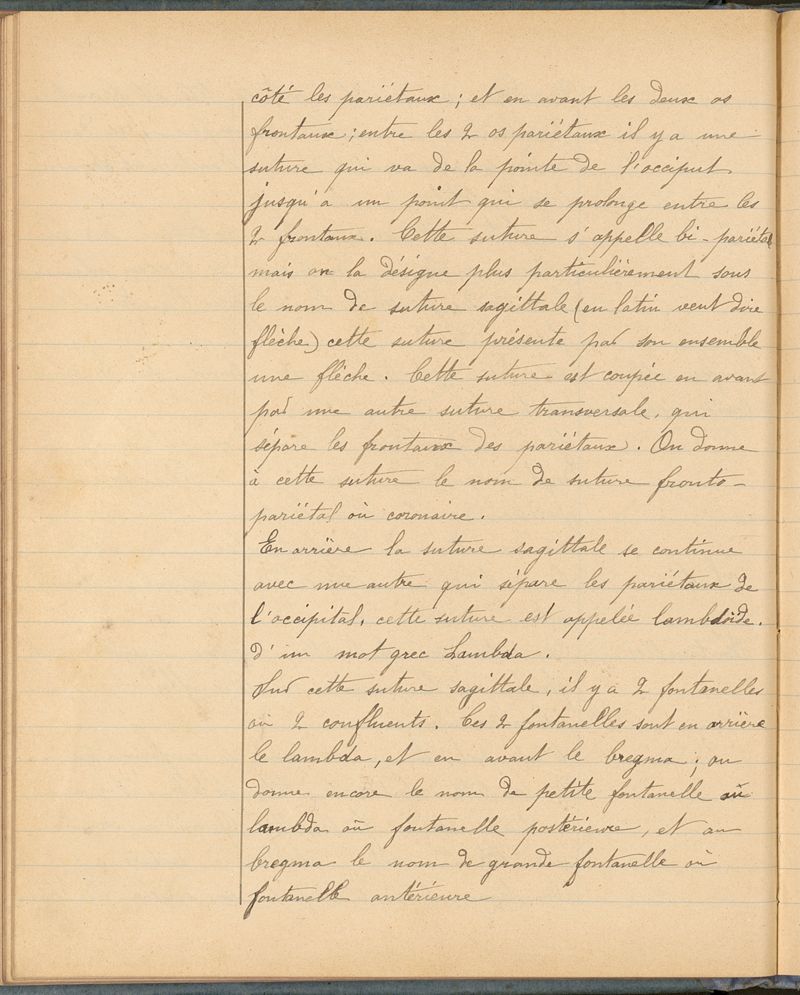 côté les pariétaux ; et en avant les deux os
frontaux ; entre les 2 os pariétaux il y a une
suture qui va de la pointe de l'occiput
jusqu'a un point qui se prolonge entre les
2 frontaux. Cette suture s'appelle bi-pariétal
mais on la désigne plus particulièrement sous
le nom de suture sagittale (en latin veut dire
flèche) cette suture présente par son ensemble
une flèche. Cette suture est coupée en avant
par une autre suture transversale, qui
sépare les frontaux des pariétaux. On donne
à cette suture le nom de suture fronto-
pariétal où coronaire.
En arrière la suture sagittale se continue
avec une autre qui sépare les pariétaux de
l'occipital, cette suture est appelée lambdoïde.
d'un mot grec Lambda.
Sur cette suture sagittale, il y a 2 fontanelles
où 2 confluents. Ces 2 fontanelles sont en arrière
le lambda, et en avant le bregma ; on
donne encore le nom de petite fontanelle où
lambda où fontanelle postérieure, et au
bregma le nom de grande fontanelle où
fontanelle antérieure